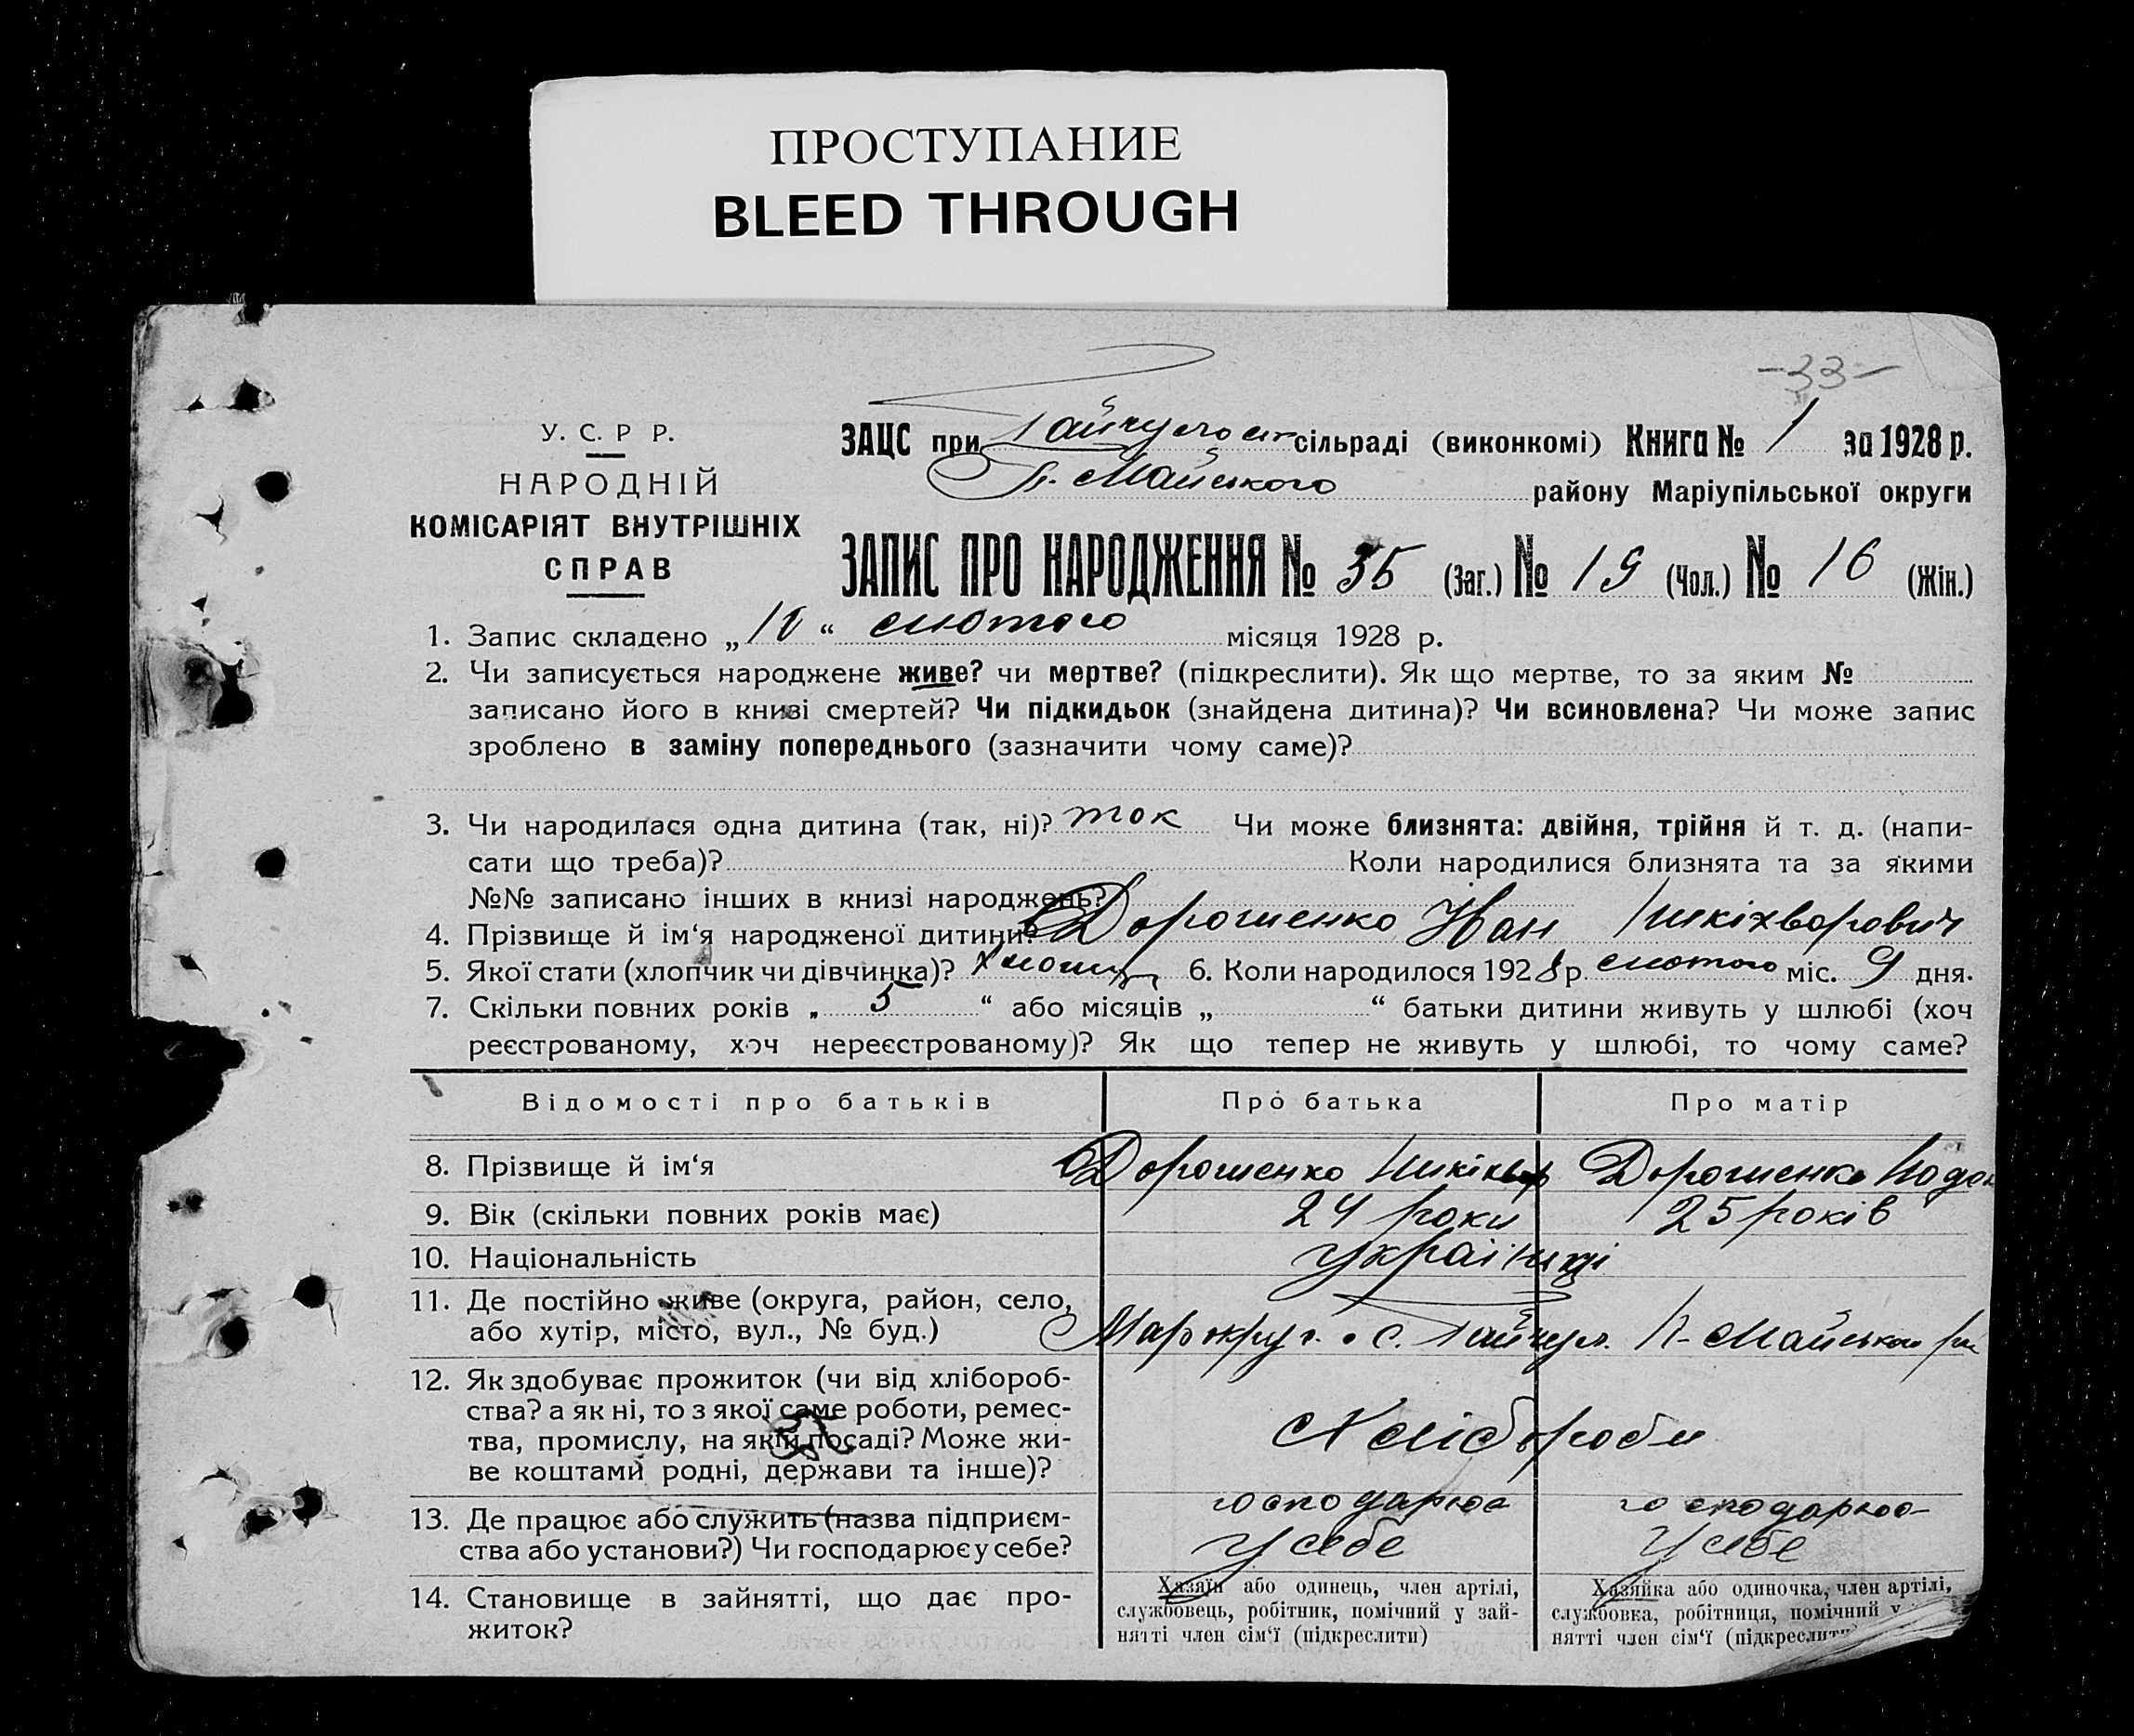 ПРОСТУПАНИЕ
BLEED THROUGH
-33-
У. С. Р Р.
НАРОДНІЙ
КОМІСАРІЯТ ВНУТРІШНІХ
СПРАВ
ЗАЦС при сільраді (виконкомі) Книга № 1 за 1928 р.
П. Майського району Маріупільської округи
ЗАПИС ПРО НАРОДЖЕННЯ № 35 (Заг.) № 19 (Чол.) № 16 (Жін.)
1. Запис складено „ “ лютого місяця 1928 р.
2. Чи записується народжене живе? чи мертве? (підкреслити). Як що мертве, то за яким №
записано його в книзі смертей? Чи підкидьок (знайдена дитина)? Чи всиновлена? Чи може запис
зроблено в заміну попереднього (зазначити чому саме)?
3. Чи народилася одна дитина (так, ні)? так Чи може близнята: двійня, трійня й т. д. (напи-
сати що треба)? Коли народилися близнята та за якими
№№ записано інших в книзі народжень?
4. Прізвище й ім‘я народженої дитини? Дорошенко Іван Никіхворович
5. Якої стати (хлопчик чи дівчинка)? 6. Коли народилося 1928 р. лютого міс. 9 дня.
7. Скільки повних років „ 5 “ або місяців „ “ батьки дитини живуть у шлюбі (хоч
реєстрованому, хоч нереєстрованому)? Як що тепер не живуть у шлюбі, то чому саме?
Відомості про батьків Про батька Про матір
8. Прізвище й ім‘я Дорошенко Дорошенко
9. Вік (скільки повних років має) 24 роки 25 років
10. Національність українці
11. Де постійно живе (округа, район, село,
або хутір, місто, вул., № буд.) Мар округ. с. Гайчул. П-Майського
12. Як здобуває прожиток (чи від хлібороб-
ства? а як ні, то з якої саме роботи, ремес-
тва, промислу, на якій посаді? Може жи-
ве коштами родні, держави та інше)? Хлібороби
13. Де працює або служить (назва підприєм-
ства або установи?) Чи господарює у себе? господарює у себе господарює у себе
14. Становище в зайнятті, що дає про-
житок?
Хазяїн або одинець, член артілі,
службовець, робітник, помічний у зай-
нятті член сім‘ї (підкреслити)
Хазяйка або одиночка, член артілі,
службовка, робітниця, помічний у
нятті член сім‘ї (підкреслити